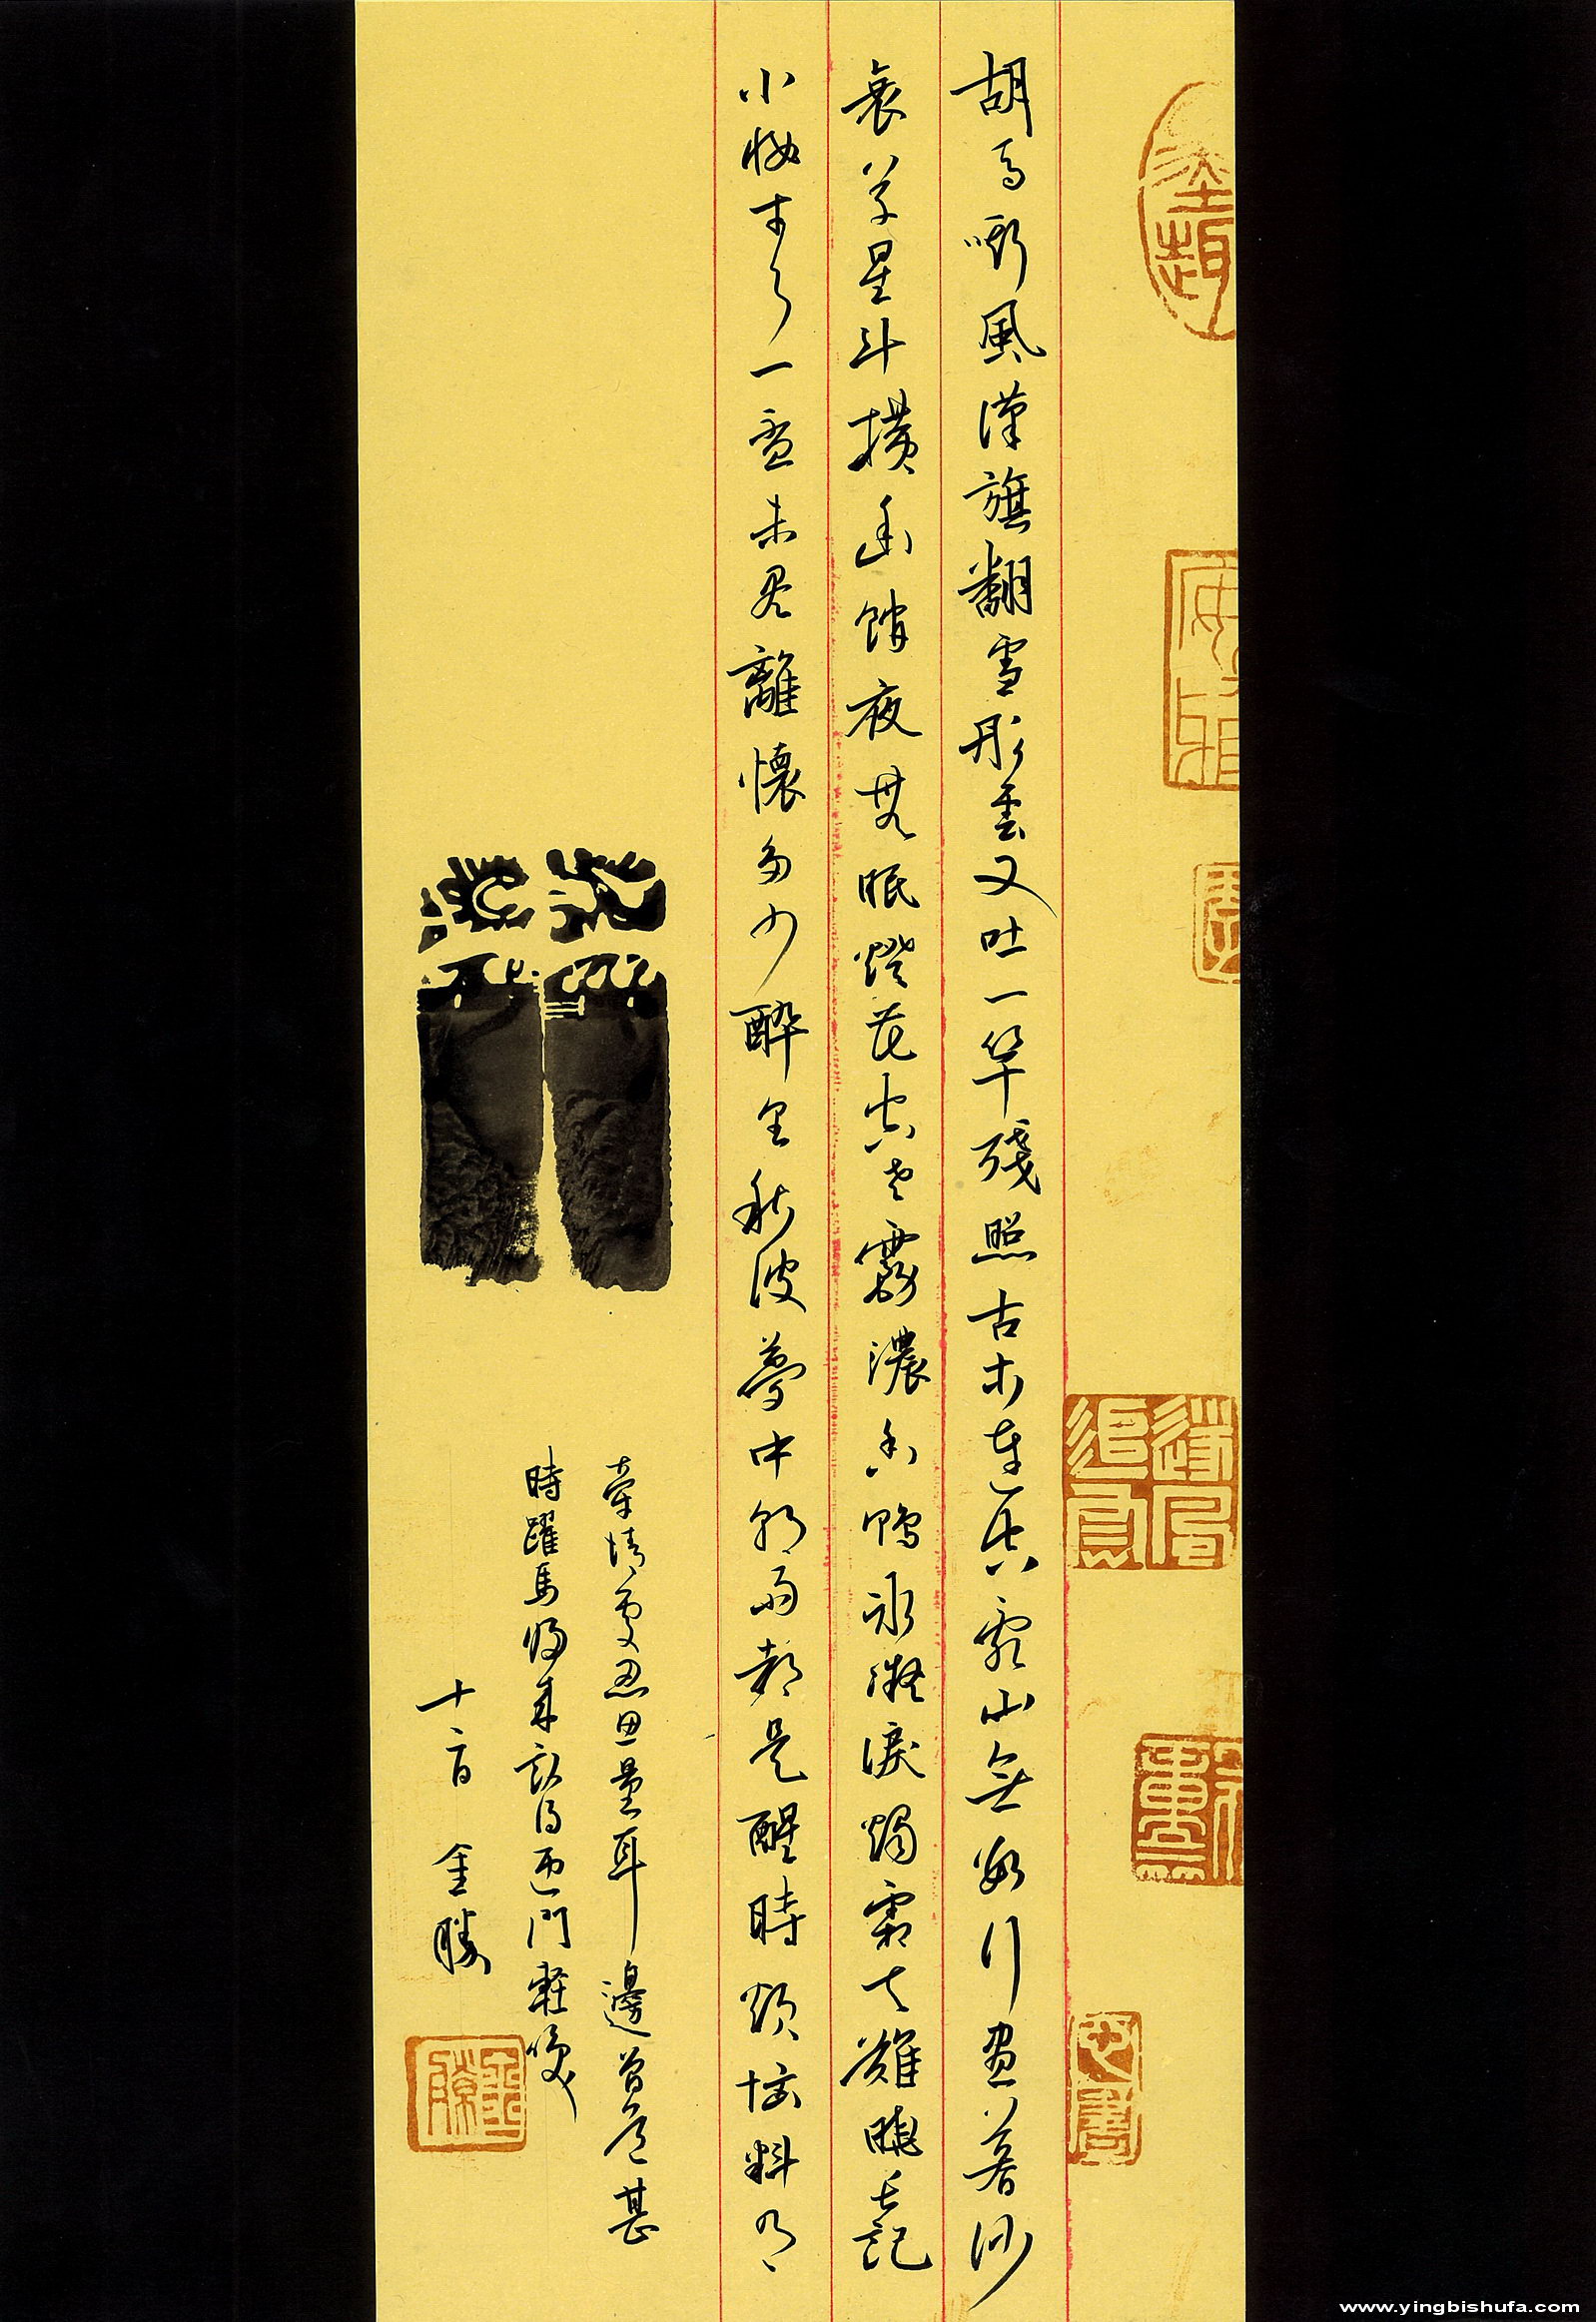 胡馬嘶風漢旗翻雪彤雲又吐一竿殘照古木連空亂山無數行盡暮沙
衰草星斗橫幽館夜無眠燈花空老霧濃香鴨冰凝淚燭霜天難曉長記
小妝才了一盃未盡離懷多少醉里秋波夢中朝雨都是醒時煩惱料有
牽情處忍思量耳邊曾道甚
時躍馬歸來認得迎門輕笑
十二月 金勝
www.yingbishufa.com